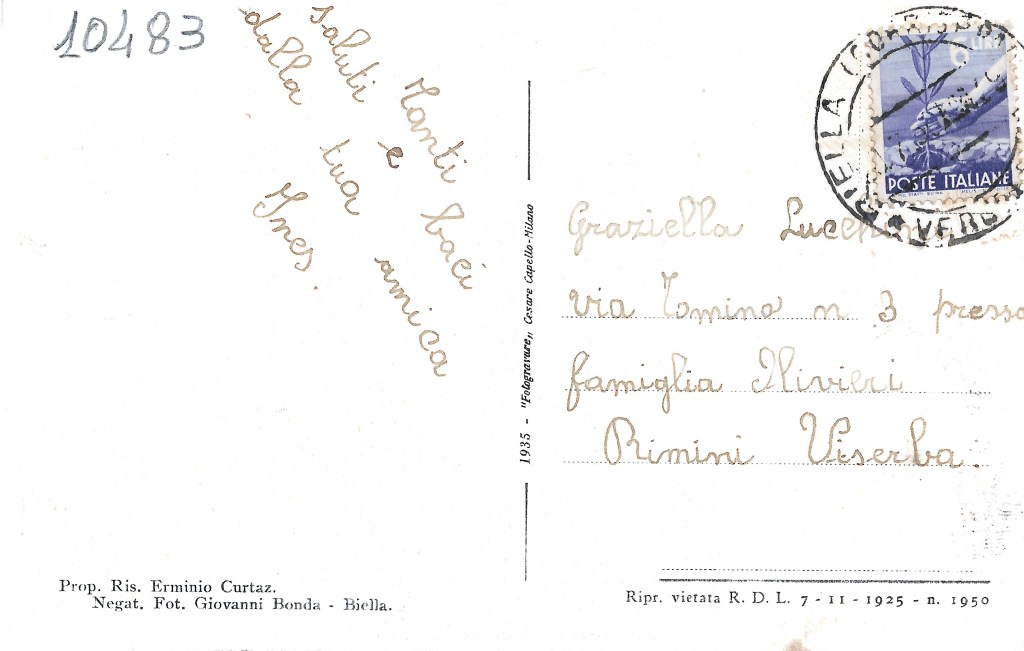 10483
Tanti
saluti e baci
dalla tua amica
Ines.
6 LIRE
POSTE ITALIANE
BIELLA
Graziella
via Tomino n 3 presso
famiglia Olivieri
Rimini Viserba.
1935 - "Fotogravure„ Cesare Capello-Milano
Prop. Ris. Erminio Curtaz.
Negat. Fot. Giovanni Bonda - Biella.
Ripr. vietata R. D. L. 7 - 11 - 1925 - n. 1950